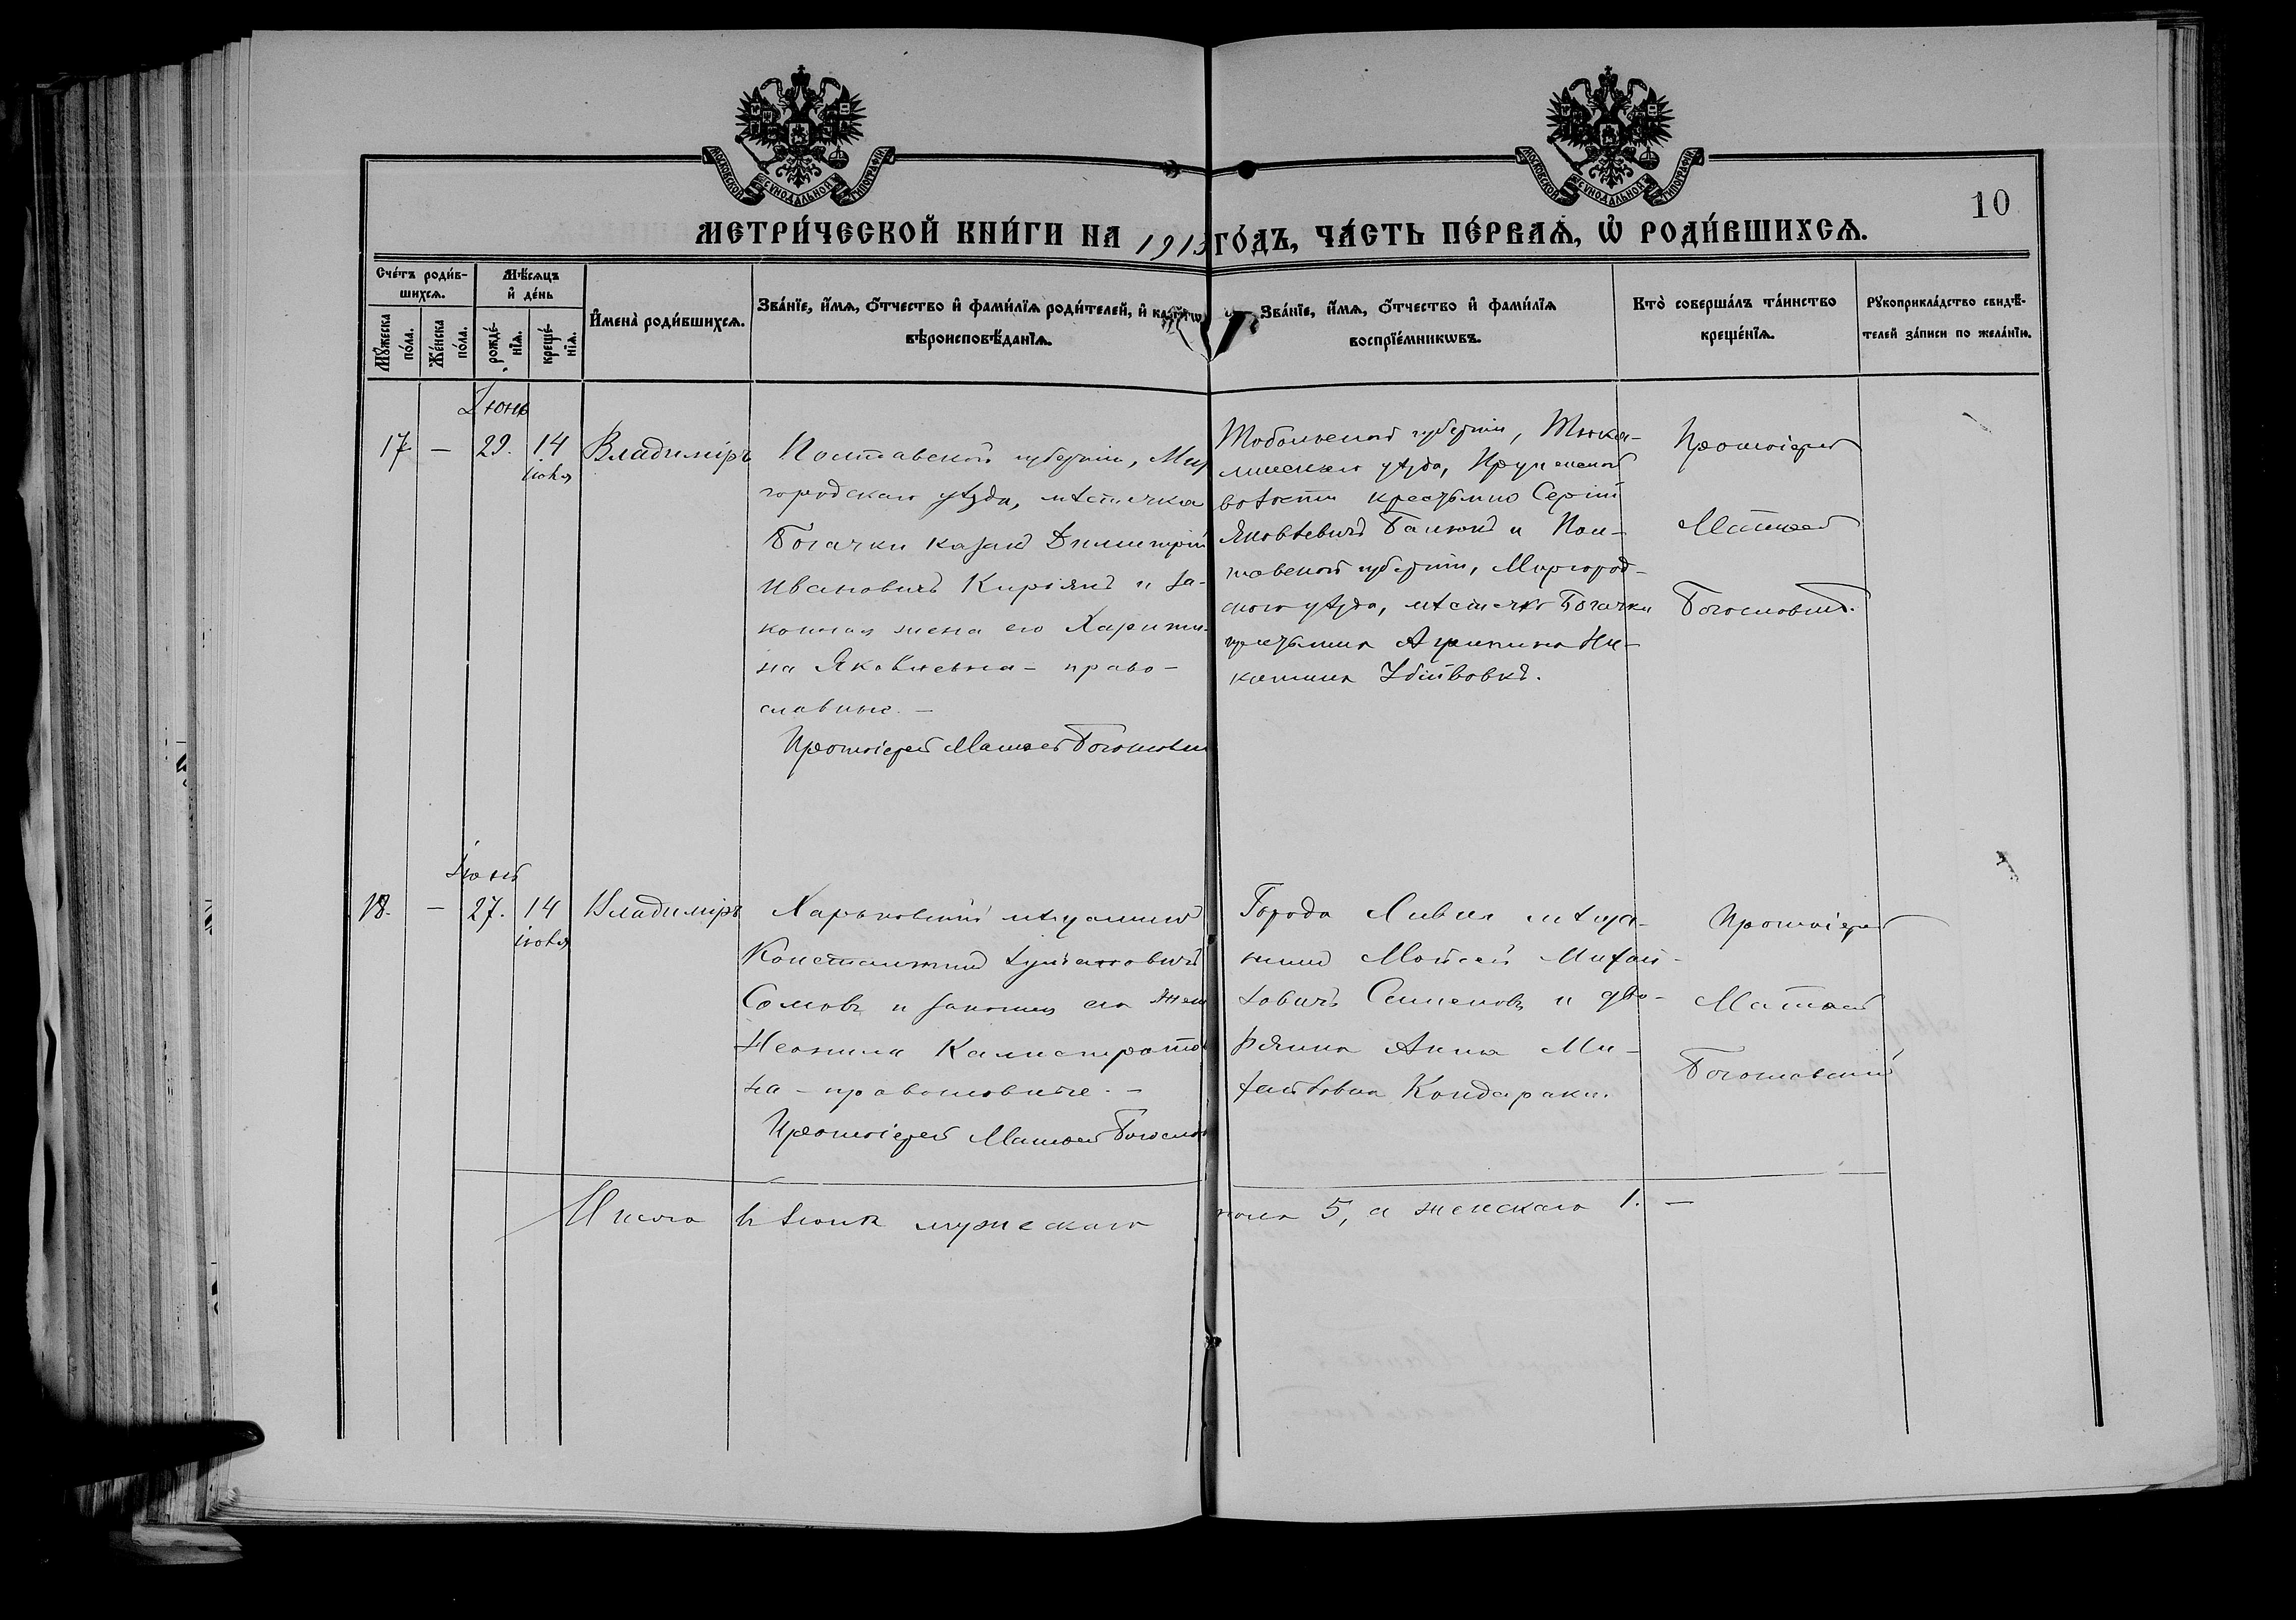 МОСКОВСКОЙ СѴНОДАЛЬНОЙ ТИПОГРАФІИ
МОСКОВСКОЙ СѴНОДАЛЬНОЙ ТИПОГРАФІИ
10
МЕТРИ́ЧЕСКОЙ КНИ́ГИ НА 1913 ГО́ДЪ, ЧА́СТЬ ПЕ́РВАѦ, Ѡ҆ РОДИ́ВШИХСѦ.
Сче́тъ роди́в-
шихсѧ.
Мꙋ́жеска по́ла.
Же́нска по́ла.
Мѣ́сѧцъ
и҆ де́нь
рожде́-
нїѧ.
креще́-
нїѧ.
И҆мена̀ роди́вшихсѧ.
Зва́нїе, и҆́мѧ, ѻ҆́тчество и҆ фами́лїѧ роди́телей, и҆
вѣроисповѣ́данїѧ.
Зва́нїе, и҆́мѧ, ѻ҆́тчество и҆ фами́лїѧ
воспрїе́мникѡвъ.
Кто̀ соверша́лъ та́инство
креще́нїѧ.
Рꙋкоприкла́дство свидѣ́-
телей за́писи по жела́нїю.
Іюнь
17 — 29. 14
іюля
Владиміръ
Полтавской губерніи, Мир
городскаго уѣзда, мѣстечка
Богачки казакъ Димитрій
Ивановичъ Киріякъ и за-
конная жена его Харити-
на Яковлевна - право-
славные. —
Протоіерей Матѳей Богословск
Тобольской губерніи, Тюка-
линскаго уѣзда, Крупенской
волости крестьянинъ Сергій
Яковлевичъ Балюкъ и Пол-
тавской губерніи, Миргород-
скаго уѣзда, мѣстечка Богачки
крестьянка Агрипина Ни-
китина Убійвовкъ.
Протоіерей
Матѳей
Богословскій.
Іюнь
18. — 27. 14
іюля
Владиміръ
Харьковскій мѣщанинъ
Константинъ Іуліановичъ
Сомовъ и законная его жена
Неонила Калистратов
на - православные. —
Протоіерей Матѳей Богослов
Города Ливны мѣща-
нинъ Моисей Михай-
ловичъ Семеновъ и дво-
рянка Анна Ми-
хайловна Кондараки.
Протоіерей
Матѳей
Богословскій
Итого въ іюнѣ мужескаго пола 5, а женскаго 1. —